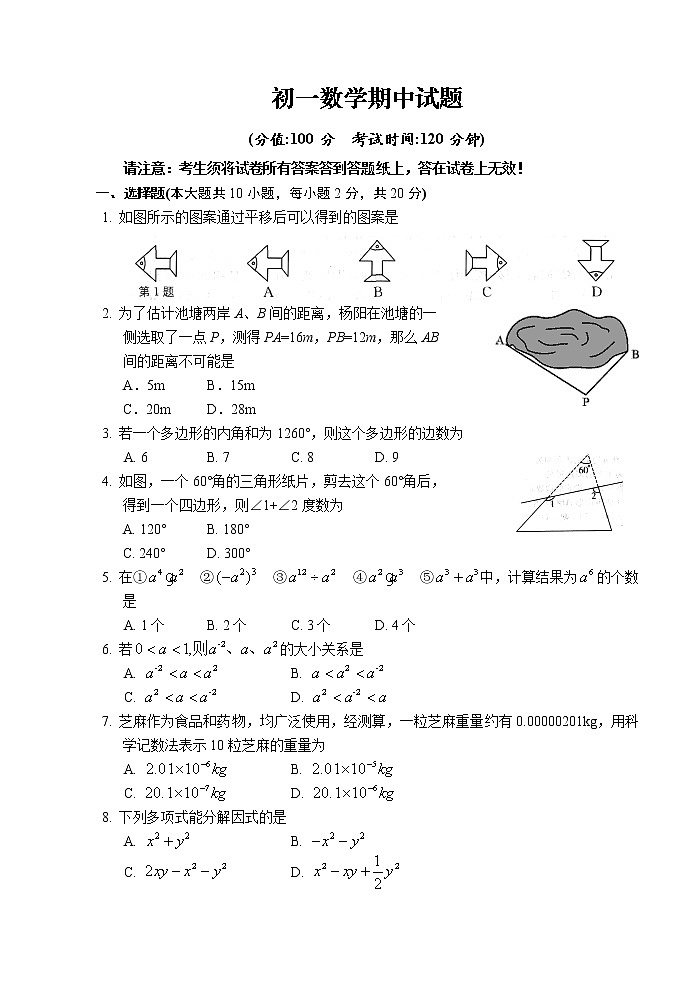 初一数学期中试题
(分值:100 分　考试时间:120 分钟)
请注意：考生须将试卷所有答案答到答题纸上，答在试卷上无效！
一、选择题(本大题共 10 小题，每小题 2 分，共 20 分)
1. 如图所示的图案通过平移后可以得到的图案是
第 1 题　A　B　C　D
2. 为了估计池塘两岸 A、B 间的距离，杨阳在池塘的一
侧选取了一点 P，测得 PA=16m，PB=12m，那么 AB
间的距离不可能是
A．5m　B．15m
C．20m　D．28m
A　B　P
3. 若一个多边形的内角和为 1260°，则这个多边形的边数为
A. 6　B. 7　C. 8　D. 9
4. 如图，一个 60°角的三角形纸片，剪去这个 60°角后，
得到一个四边形，则∠1+∠2 度数为
A. 120°　B. 180°
C. 240°　D. 300°
60°　1　2
5. 在①a⁴ a²　②(−a²)³　③a¹² ÷ a²　④a² a³　⑤a³ + a³中，计算结果为a⁶的个数
是
A. 1个　B. 2个　C. 3个　D. 4个
6. 若0 < a < 1,则a⁻²、a、a²的大小关系是
A. a⁻² < a < a²　B. a < a² < a⁻²
C. a² < a < a⁻²　D. a² < a⁻² < a
7. 芝麻作为食品和药物，均广泛使用，经测算，一粒芝麻重量约有 0.00000201kg，用科
学记数法表示 10 粒芝麻的重量为
A. 2.01×10⁻⁶kg　B. 2.01×10⁻⁵kg
C. 20.1×10⁻⁷kg　D. 20.1×10⁻⁶kg
8. 下列多项式能分解因式的是
A. x² + y²　B. −x² − y²
C. 2xy − x² − y²　D. x² − xy + 1/2 y²